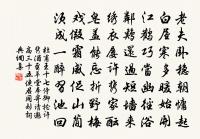 老夫臥穩朝慵起
白屋寒多暖始開
江鸛巧當幽徑浴
鄰雞還過短牆來
繡衣屢許攜家醞
皂蓋能忘折野梅
戲假霜威促山簡
須成一醉習池回
杜甫王十七侍御掄許
攜酒至草堂奉寄此詩便請邀
高三十五使君同到